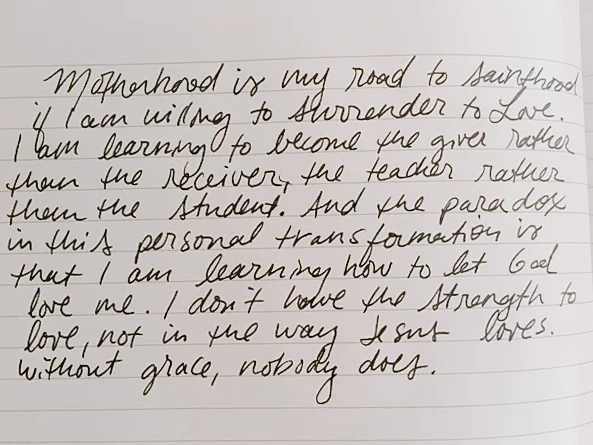 Motherhood is my road to sainthood
if I am willing to surrender to Love.
I am learning to become the giver rather
than the receiver, the teacher rather
than the student. And the paradox
in this personal transformation is
that I am learning how to let God
love me. I don't have the strength to
love, not in the way Jesus loves.
without grace, nobody does.